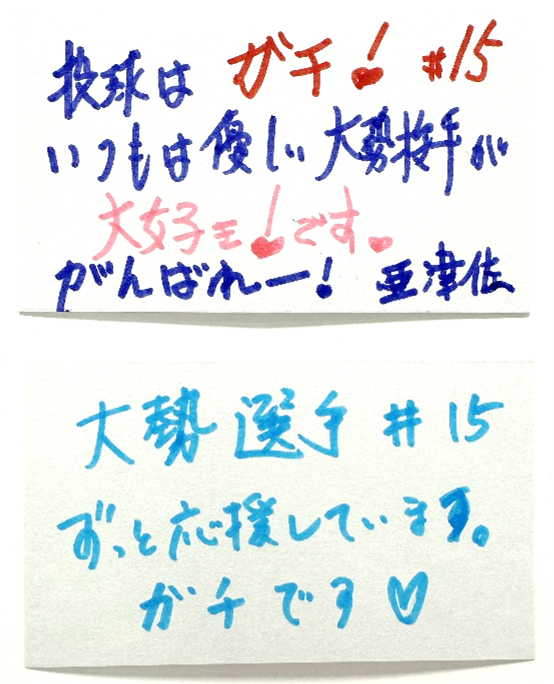 投球は ガチ! #15
いつもは優しい 大勢投手が
大好き!です。
がんばれー! 亜津佐
大勢選手 #15
ずっと応援しています。
ガチです♡